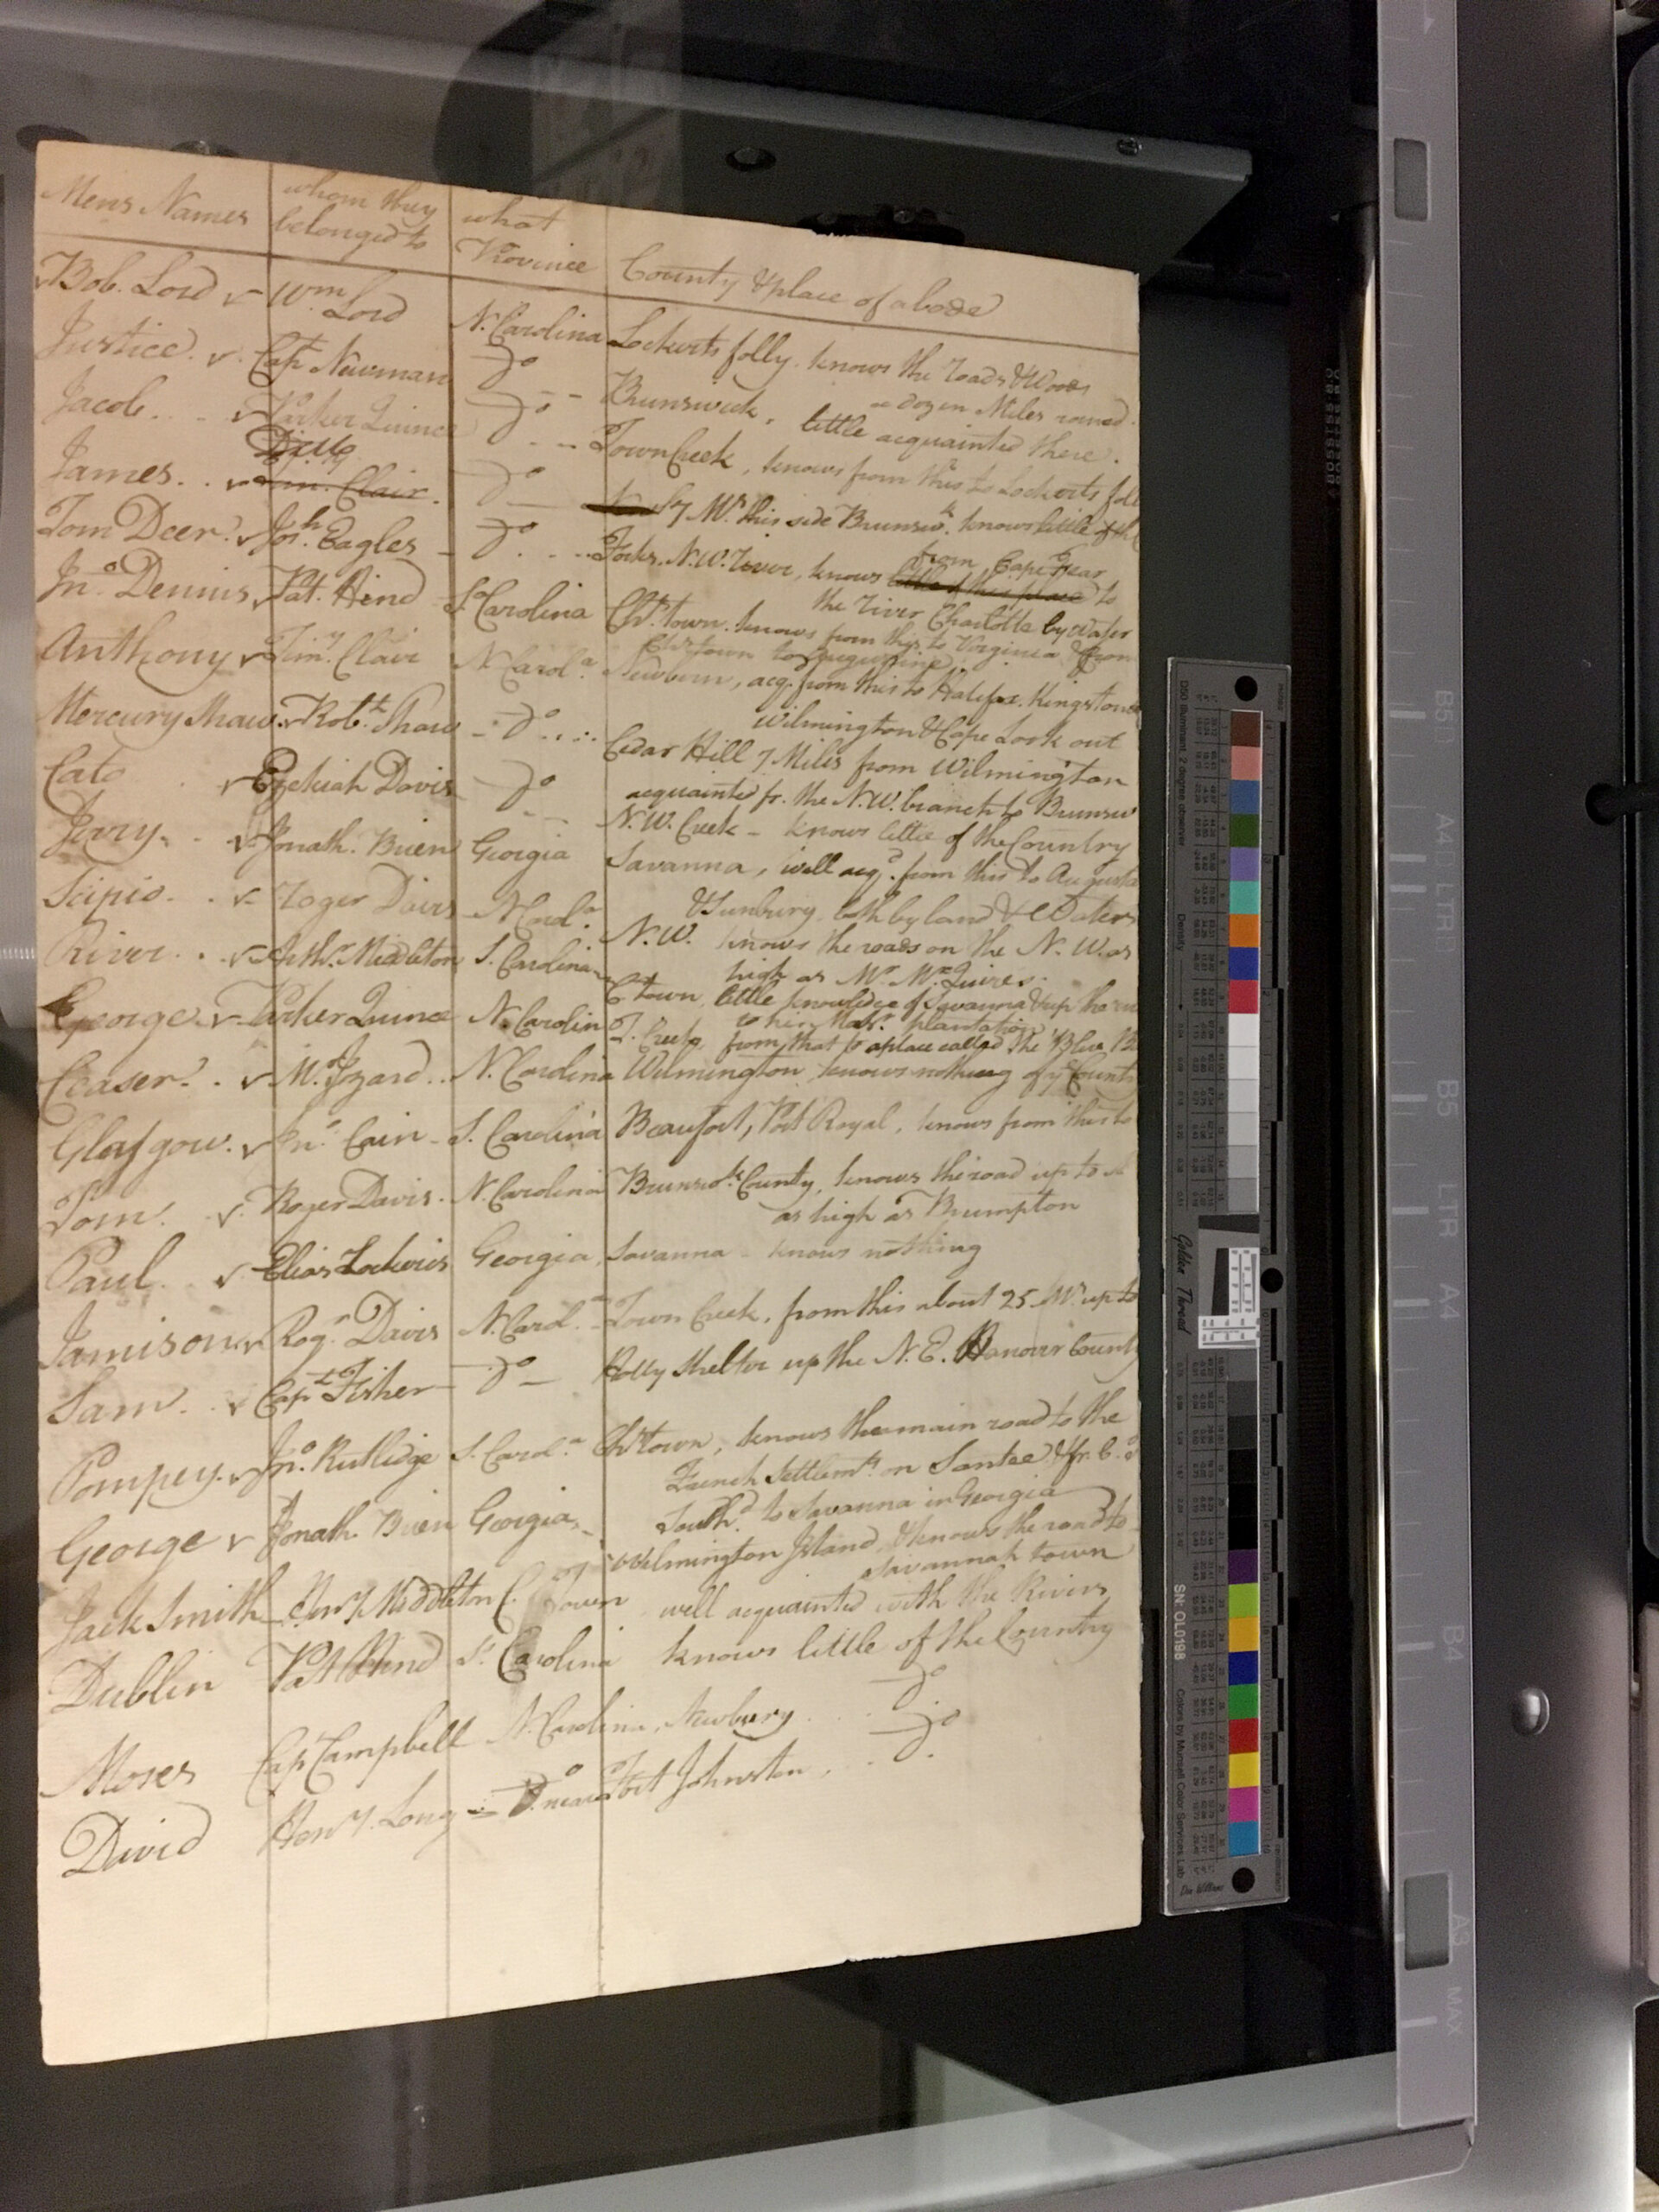 Mens Names whom they belonged to what Province County & place of abode
Bob. Lord Wm Lord N. Carolina Lockerts folly. knows the roads & Woods
a dozen Miles round.
Justice. Capt Newman Do Brunswick, little acquainted there.
Jacob Parker Quince Do Town Creek, knows from this to Lockerts foll
James Ditto Tim. Clair. Do 7 Ms. this side Brunswk. knows little of th
Tom Deer. Josh. Eagles Do Forks. N.W. River, knows from Cape Fear little of this place to
the river Charlotte by water
Jno. Dennis Pat. Hind So Carolina Chs. town. knows from this to Virginia & from
Chs town to Augustine
Anthony Timy. Clair N. Carola. Newbern, acq. from this to Halifax. Kingston &
Wilmington & Cape Look out
Mercury Shaw. Robt. Shaw Do Cedar Hill 7 Miles from Wilmington
acquainted fr. the N.W. branch to Brunsw
Cato Ezekiah Davis Do N.W. Creek - knows little of the Country
Jerry. Jonath. Brien Georgia Savanna, well acqd. from this to Augusta
& Sunbury both by land & Waters
Scipio. Roger Davis N. Carola. N.W. knows the roads on the N.W. as
high as Mr. Mc.Quires.
River. Arthr. Middleton S. Carolina C town, little knowledge of Savanna & up the
to his Mastr. plantation
George. Parker Quince N. Carolin T. Creek, from that to a place called the Blue B
Ceaser. M. Izzard N. Carolina Wilmington knows nothing of ye Count
Glasgow. Jno. Cain S. Carolina Beaufort, Port Royal, knows from this to
Tom. Roger Davis. N. Carolina Brunswk. County, knows the road up to
as high as Brumpton
Paul. Elias Lockeris Georgia Savanna - knows nothing
Jamison Rogr. Davis N. Carola. Town Creek, from this about 25 Ms. up to
Sam. Capt Fisher Do Holly Shelter up the N.E. Hanover County
Pompey. Jno. Rutlidge S. Carola. Chs town, knows the main road to the
French Settlemts. on Santee & fr. C.
Southd. to Savanna in Georgia
George Jonath. Brien Georgia. Wilmington Island, & knows the road to
Savannah town
Jack Smith Henry Middleton C. Town well acquainted with the Rivers
Dublin Pat Hind S. Carolina knows little of the Country
Moses Capt Campbell N. Carolina, Newbury Do
David Heny. Long Do. near Fort Johnston, Do.
B5 A4 LTR B5 LTR A4 B4 A3 MAX
Golden Thread
SN: OL0198
Colors by Munsell Color Services Lab
D50 Illuminant, 2 degree observer
Density